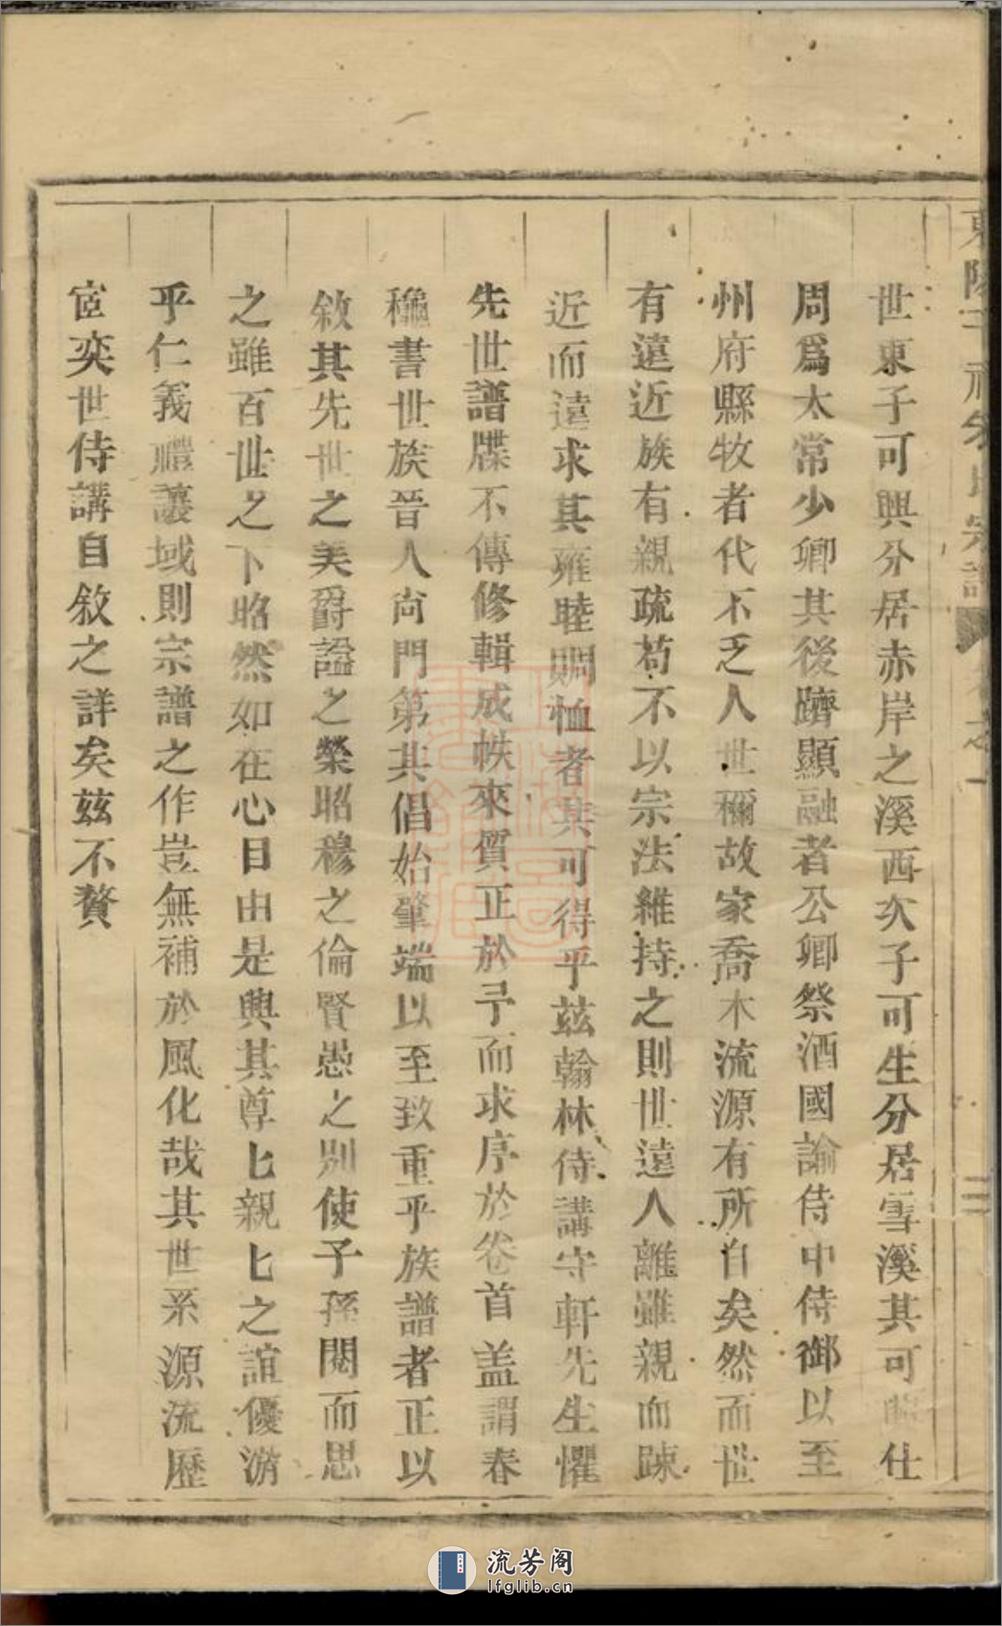 世東子可興分居赤岸之溪西次子可生分居雪溪其可仕
周爲太常少卿其後躋顯融者公卿祭酒國諭侍中侍御以至
州府縣牧者代不乏人世禰故家喬木流源有所自矣然而世
有遠近族有親疏苟不以宗法維持之則世遠人離雖親而踈
近而遠求其雍睦賙恤者其可得乎茲翰林侍講守軒先生懼
先世譜牒不傳修輯成帙來質正於予而求序於卷首盖謂春
穐書世族晉人尚門第其倡始肇端以至致重乎族譜者正以
敘其先世之美爵謚之榮昭穆之倫賢愚之別使子孫閱而思
之雖百世之下昭然如在心目由是興其尊匕親匕之誼優游
乎仁義禮讓域則宗譜之作豈無補於風化哉其世系源流歷
宦奕世侍講自敘之詳矣茲不贅
三
流芳阁
lfglib.cn